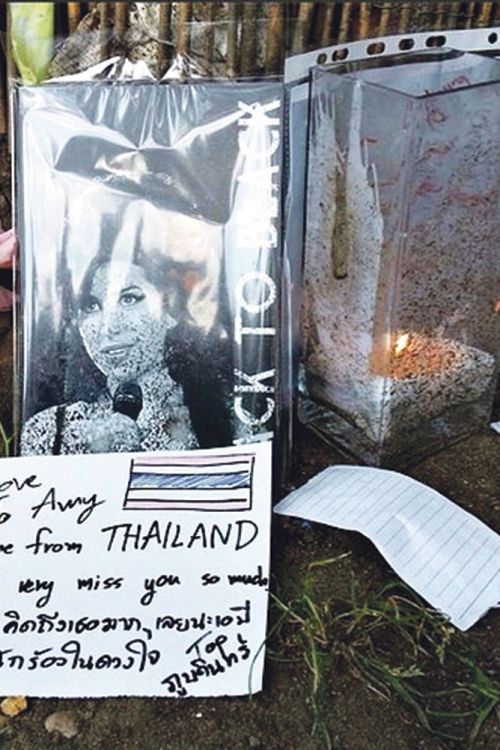 ACK TO BLACK
ove
o Amy
e from THAILAND
very miss you so much
คิดถึงเธอมากๆเลยนะเอมี่
นักร้องในดวงใจ
TOP
ภูบดินทร์